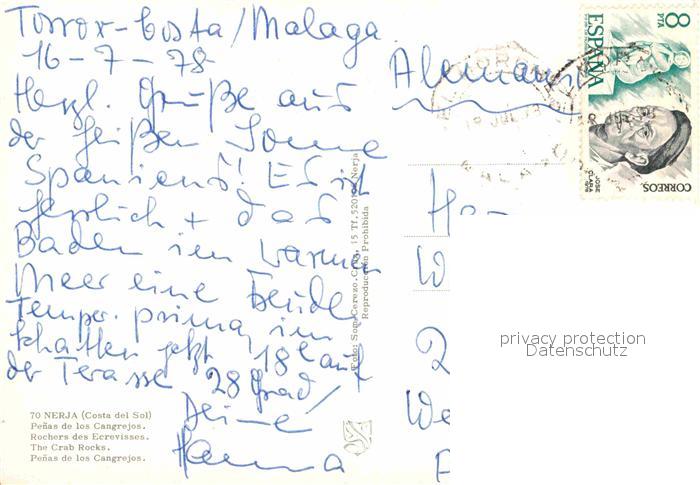 Torrox-Costa/Malaga.
16-7-78
Herzl. Grüße aus
der heißen Sonne
Spaniens! Es ist
herrlich + das
Baden im warmen
Meer eine Freude
Temper. prima, im
Schatten jetzt 18° auf
der Terasse 28 Grad/
Deine
Hanna
Alemania
Ho-
W
2
We
F
8
PTA
ESPAÑA
CORREOS
JOSE
CLARA
privacy protection
Datenschutz
Foto: Som. Cerezo. 15 Tf. 52 Nerja
Reproducción Prohibida
70 NERJA (Costa del Sol)
Peñas de los Cangrejos.
Rochers des Ecrevisses.
The Crab Rocks.
Peñas de los Cangrejos.